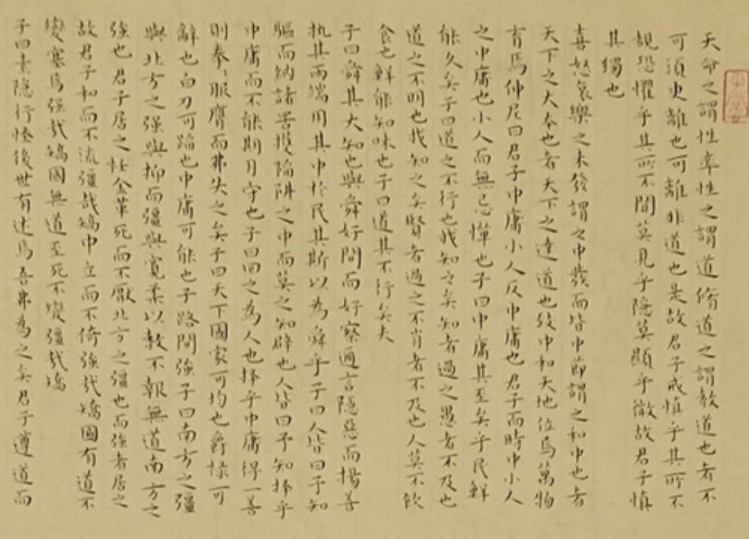 天命之謂性率性之謂道脩道之謂教道也者不
可須臾離也可離非道也是故君子戒慎乎其所不
覩恐懼乎其所不聞莫見乎隱莫顯乎微故君子慎
其獨也
喜怒哀樂之未發謂之中發而皆中節謂之和中也者
天下之大本也者天下之達道也致中和天地位焉萬物
育焉仲尼曰君子中庸小人反中庸也君子而時中小人
之中庸也小人而無忌憚也子曰中庸其至矣乎民鮮
能久矣子曰道之不行也我知之矣知者過之愚者不及也
道之不明也我知之矣賢者過之不肖者不及也人莫不飲
食也鮮能知味也子曰道其不行矣夫
子曰舜其大知也與舜好問而好察邇言隱惡而揚善
執其兩端用其中於民其斯以為舜乎子曰人皆曰予知
驅而納諸罟擭陷阱之中而莫之知辟也人皆曰予知擇乎
中庸而不能期月守也子曰回之為人也擇乎中庸得一善
則拳〻服膺而弗失之矣子曰天下國家可均也爵祿可
辭也白刃可蹈也中庸可能也子路問強子曰南方之彊
與北方之强與抑而彊與寬柔以教不報無道南方之
強也君子居之衽金革死而不厭北方之彊也而強者居之
故君子和而不流彊哉矯中立而不倚強哉矯國有道不
變塞焉強哉矯國無道至死不變彊哉矯
子曰素隱行怪後世有述焉吾弗為之矣君子遵道而